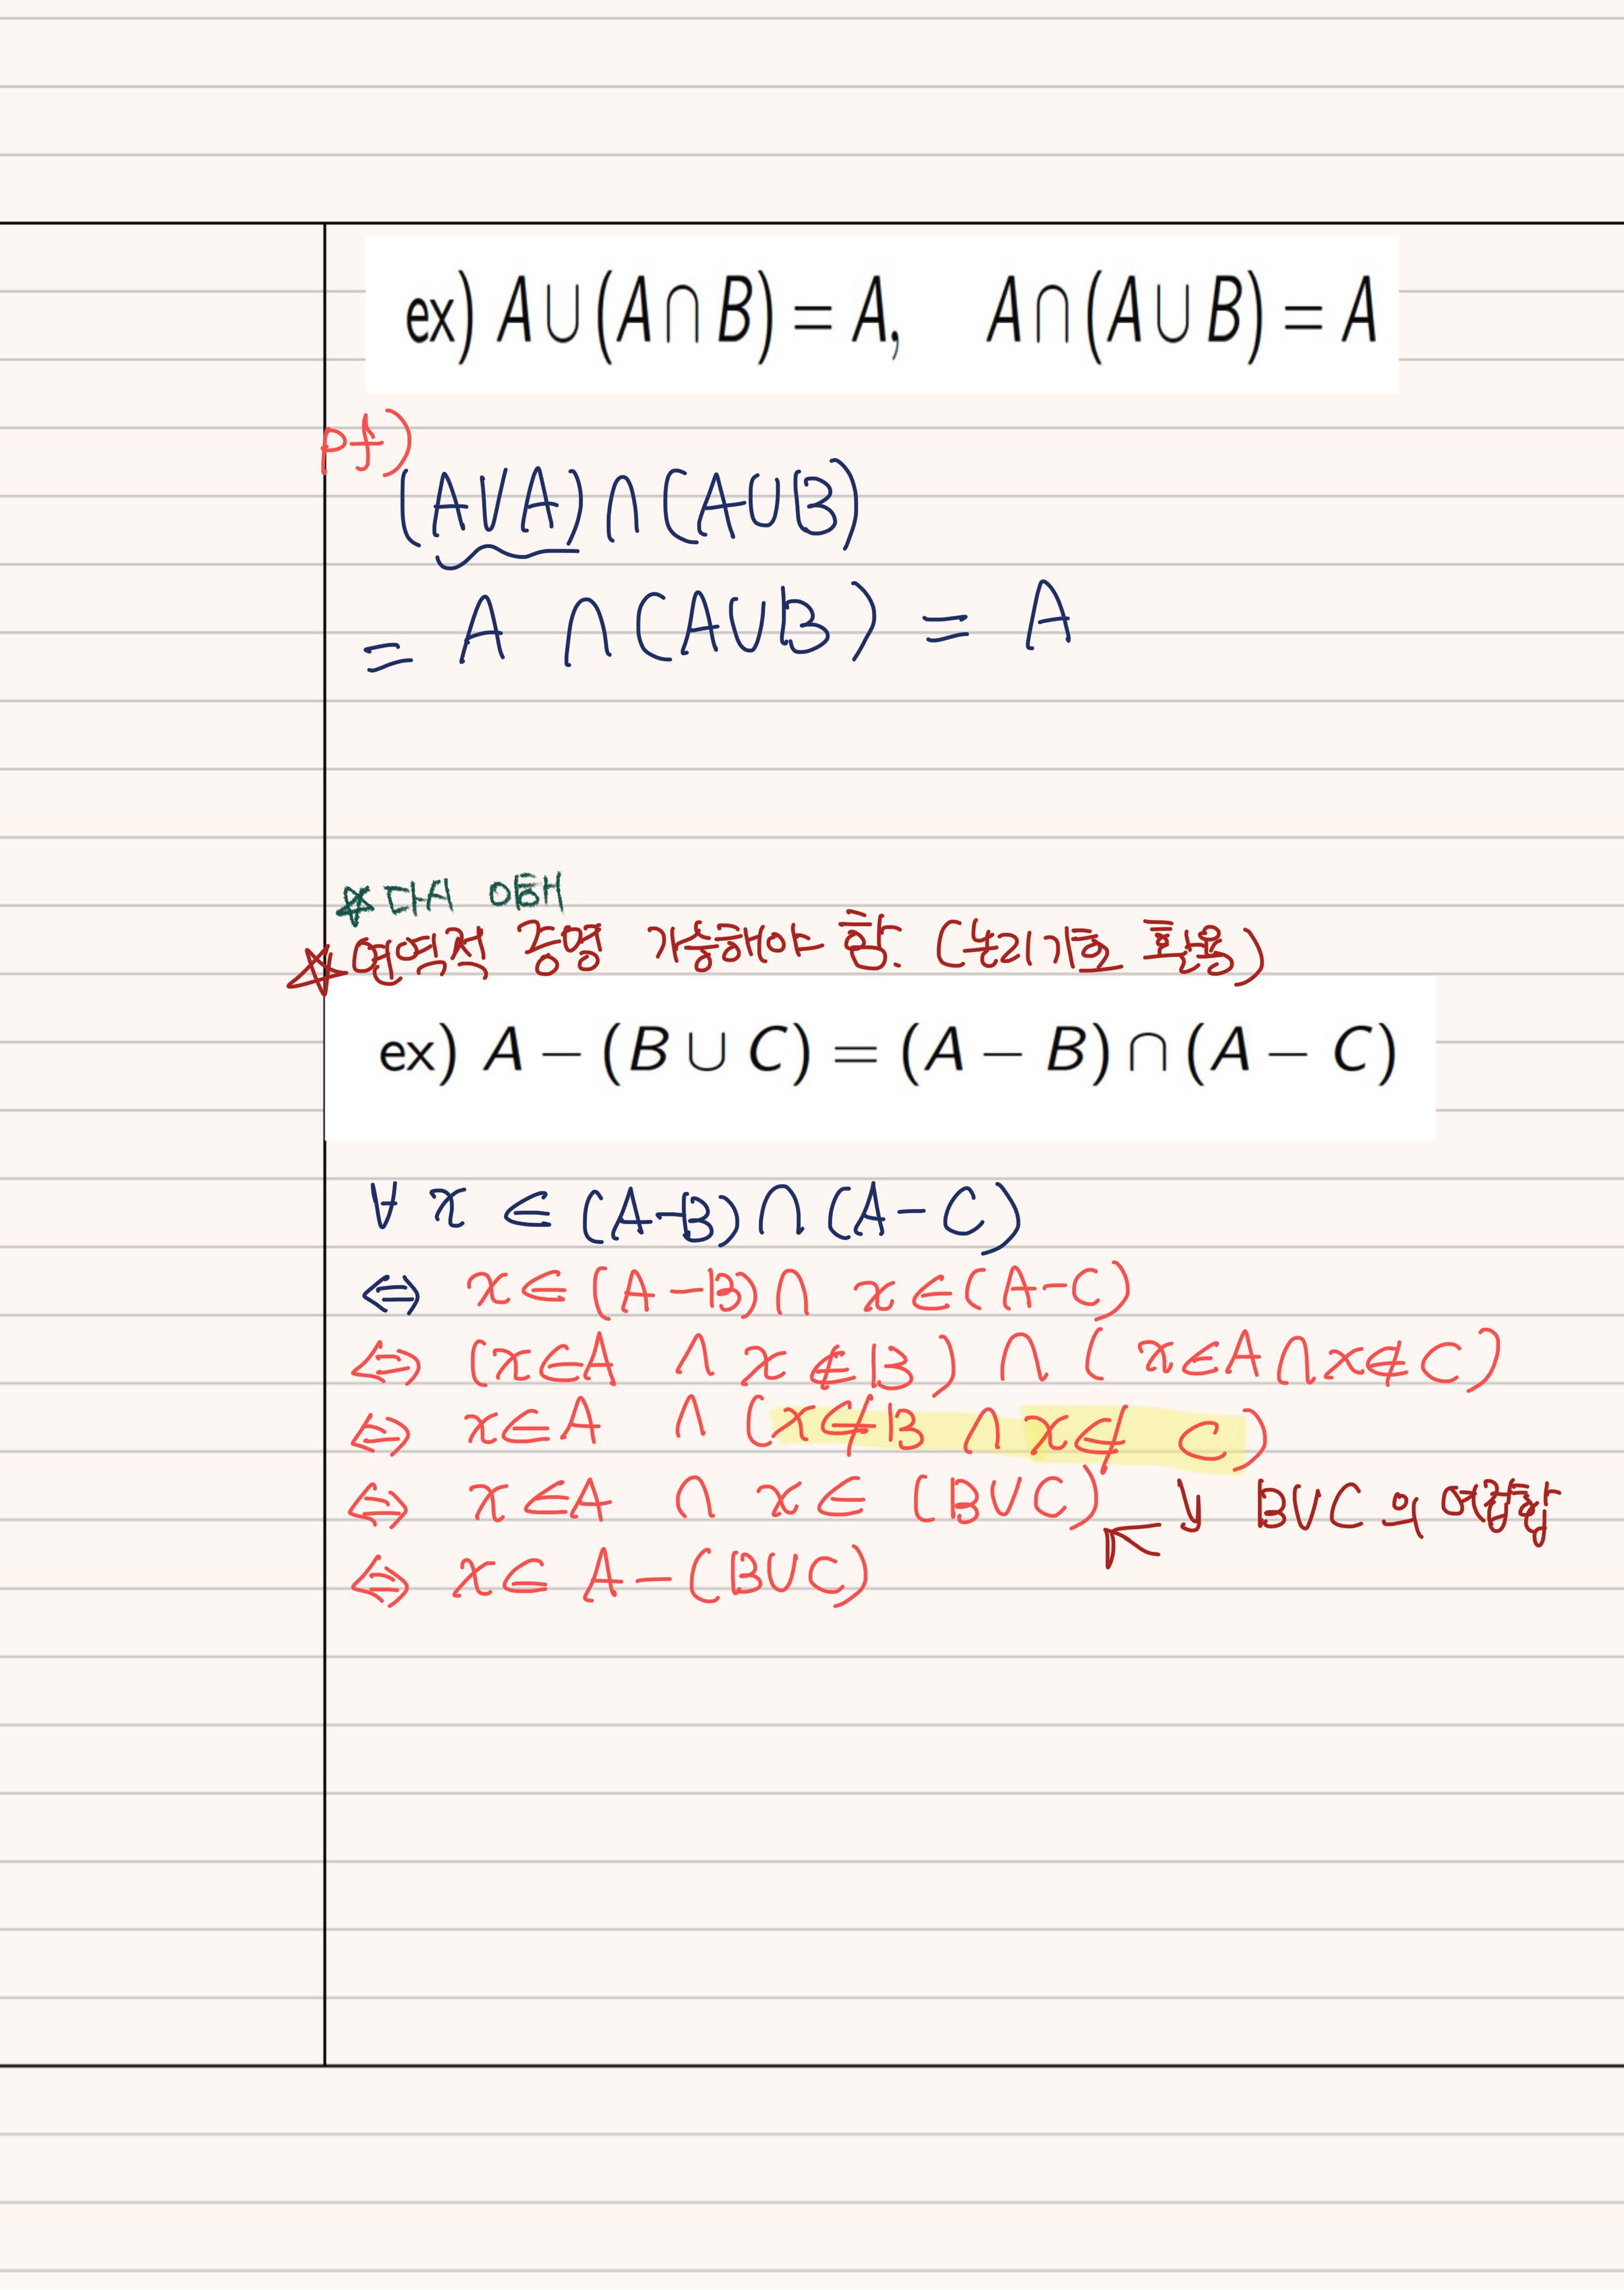 ex) A∪(A∩B) = A, A∩(A∪B) = A
pf)
(A∪A)∩(A∪B)
= A ∩(A∪B) = A
☆다시 이해
☆연역적 증명 가능해야 함. (논리기호 활용)
ex) A − (B ∪ C) = (A − B) ∩ (A − C)
∀ x ∈ (A−B)∩(A−C)
⇔ x∈(A−B)∩ x∈(A−C)
⇔ (x∈A ∩ x∉B) ∩ (x∈A∩x∉C)
⇔ x∈A ∩ (x∉B ∩ x∉ C)
⇔ x∈A ∩ x∈ (B∪C) ↓ B∪C의
⇔ x∈ A−(B∪C)